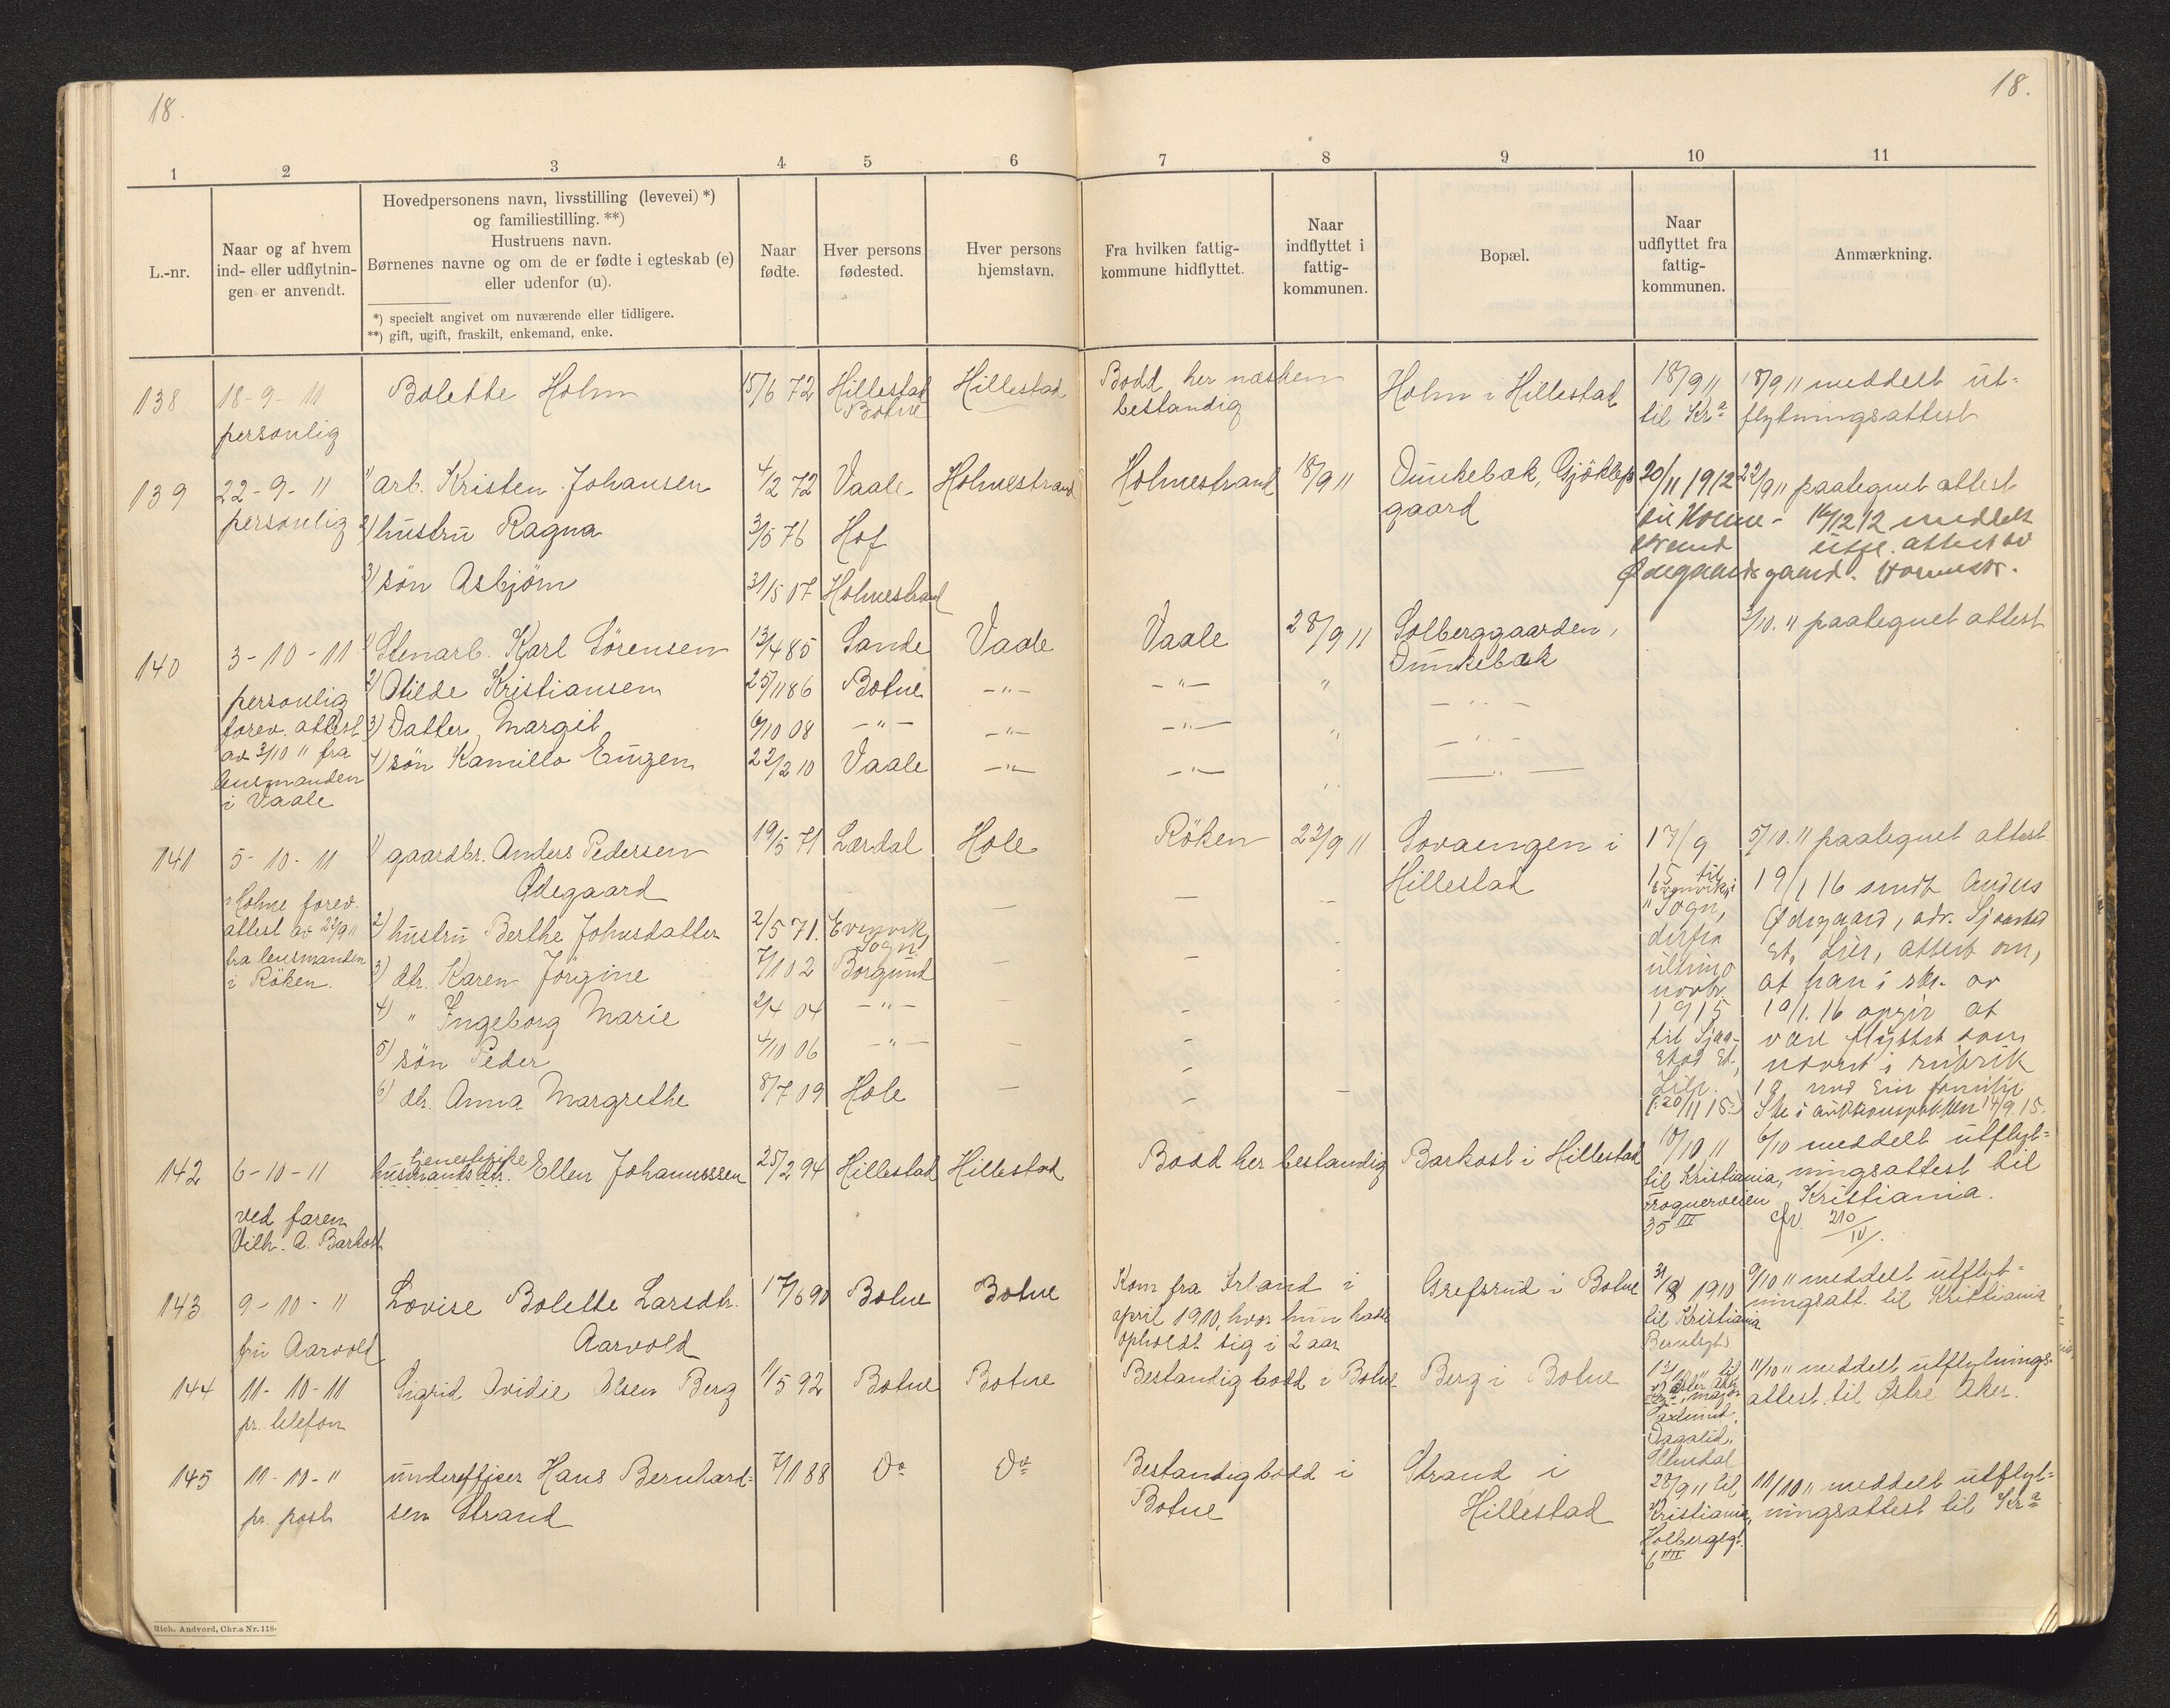 18.
18.
1 2 3 4 5 6 7 8 9 10 11
L.-nr.
Naar og af hvem
ind- eller udflytnin-
gen er anvendt.
Hovedpersonens navn, livsstilling (levevei) *)
og familiestilling. **)
Hustruens navn.
Børnenes navne og om de er fødte i egteskab (e)
eller udenfor (u).
*) specielt angivet om nuværende eller tidligere.
**) gift, ugift, fraskilt, enkemand, enke.
Naar
fødte.
Hver persons
fødested.
Hver persons
hjemstavn.
Fra hvilken fattig-
kommune hidflyttet.
Naar
indflyttet i
fattig-
kommunen.
Bopæl.
Naar
udflyttet fra
fattig-
kommunen.
Anmærkning.
138
18-9-11
personlig
Bolette Holm
15/6 72
Hillestad
Botne
Hillestad
Bodd her næsten
bestandig
Holm i Hillestad
18/9 11
til Kra
18/9 11 meddelt ut=
flytningsattest
139
22-9-11
personlig
1) arb. Kristen Johansen
4/2 72
Vaale
Holmestrand
Holmestrand
18/9 11
Dunkebæk, Gjöklep
gaard
20/11 1912
til Holme-
strand
Ødegaardsgaard. Holmestr.
22/9 11 paategnet attest
16/12 12 meddelt
utfl. attest av
2) hustru Ragna
3/5 76
Hof
3) sön Asbjörn
31/5 07
Holmestrand
140
3-10-11
personlig
forev. attest
av 3/10 11 fra
lensmanden
i Vaale
1) Stenarb. Karl Sörensen
13/4 85
Sande
Vaale
Vaale
28/9 11
Solberggaarden,
Dunkebæk
3/10. 11 paategnet attest
2) Otilde Kristiansen
25/11 86
Botne
-"- -"- " -"-
3) Datter, Margit
6/10 08
-"- -"- -"- " -"-
4) sön Kamillo Eugen
22/2 10
Vaale
-"- -"- " -"-
141
5-10-11
Holme forev.
attest av 23/9 11
fra lensmanden
i Röken.
1) gaardbr. Anders Pedersen
Ødegaard
19/5 71
Lærdal
Hole
Röken
22/9 11
Sovaengen i
Hillestad
17/9
15 til
Evenvik i
Sogn,
derfra
ultimo
novbr.
1915
til Sjaa-
stad St.,
Lier.
(:20/11 15:)
5/10. 11 paategnet attest.
19/1 16 sendt Anders
Ødegaard, adr. Sjaastad
St., Lier, attest om,
at han i skr. av
10/1. 16 opgir at
være flyttet som
nævnt i rubrik
10 med sin familie
Se i auktionspakken 14/9. 15.
2) hustru Berthe Johnsdatter
2/5 71.
Evenvik,
Sogn
3) dtr. Karen Jörgine
7/1 02
Borgund
4) " Ingeborg Marie
2/4 04
-"-
5) sön Peder
4/10 06
-"-
6) dtr. Anna Margrethe
8/7 09
Hole
142
6-10-11
ved faren
Vilh. A. Barkost
tjenestepike
husmandsdtr. Ellen Johannessen
25/2 94
Hillestad
Hillestad
Bodd her bestandig
Barkost i Hillestad
10/10 11
til Kristiania,
Frognerveien
35 III
6/10 meddelt utflyt=
ningsattest til
Kristiania.
cfr. 210/IV.
143
9-10-11
fru Aarvold
Lovise Bolette Larsdtr.
Aarvold
17/6 90
Botne
Botne
Kom fra Irland i
april 1910, hvor hun hadde
opholdt sig i 2 aar
Grefsrud i Botne
31/8 1910
til Kristiania
9/10 11 meddelt utflyt-
ningsatt. til Kristiania
144
11-10-11
pr. telefon
Sigrid Ovidie Olsen Berg
1/5 92
Botne
Botne
Bestandig bodd i Botne
Berg i Botne
11/10 11 meddelt utflytnings-
attest til Østre Aker.
145
11-10-11
pr. post
underoffiser Hans Bernhard-
sen Strand
7/1 88
Do
Do
Bestandig bodd i
Botne
Strand i
Hillestad
28/9 11 til
Kristiania,
Holbergsgt.
6 III
11/10 11 meddelt utflyt=
ningsattest til Kra
Rich. Andvord, Chr.a Nr. 118.